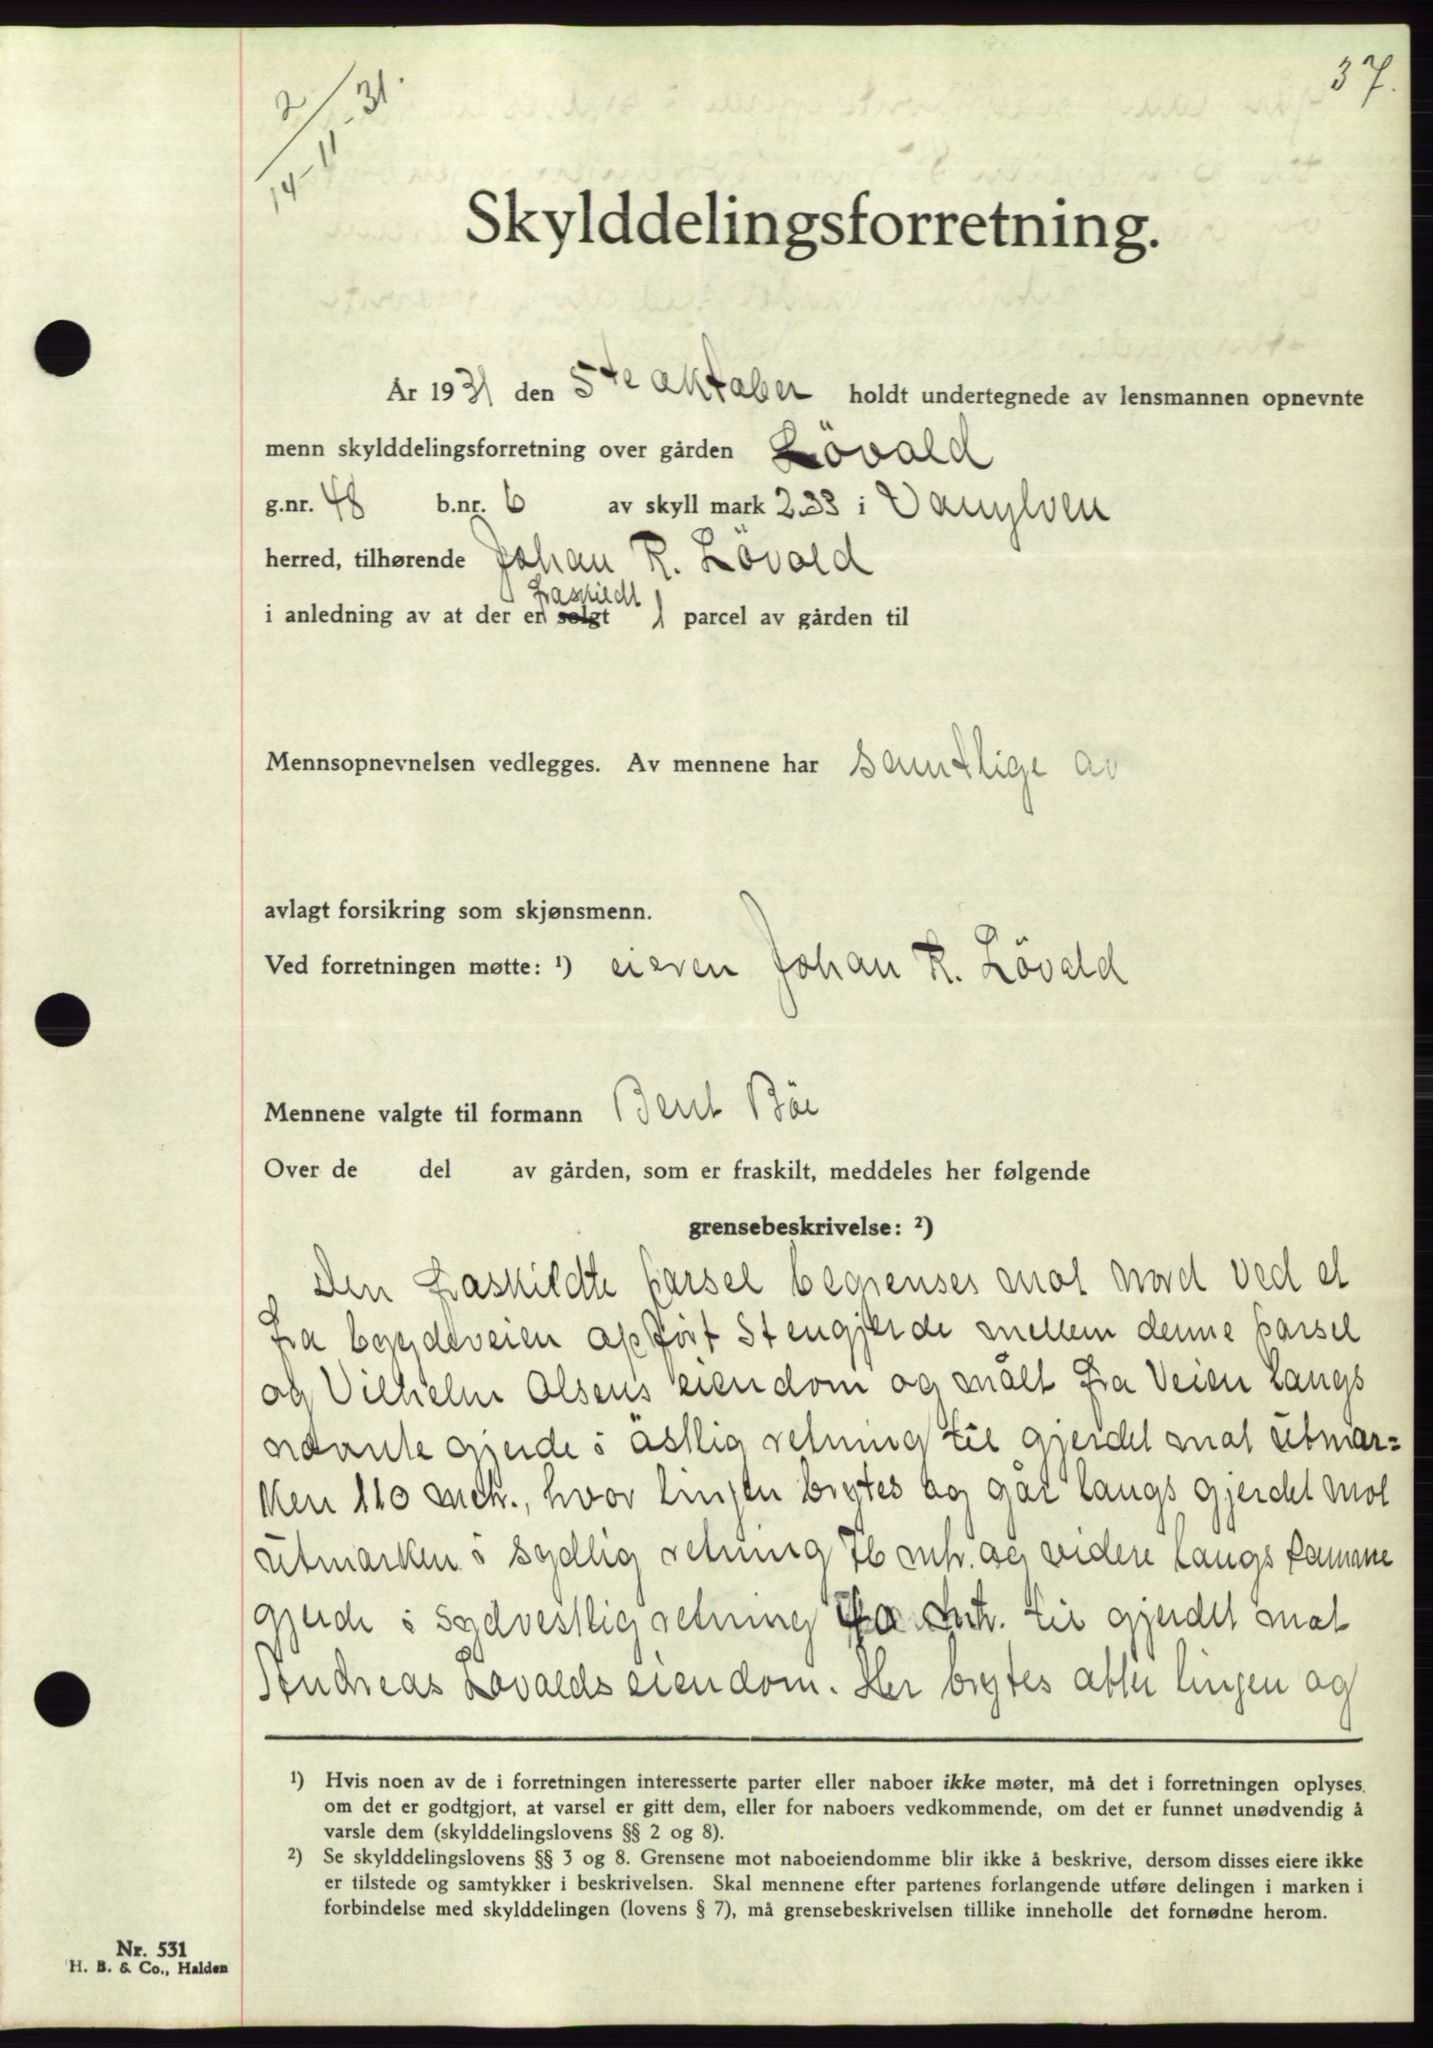 37.
2
14-11-31.
Skylddelingsforretning.
År 1931 den 5te oktober holdt undertegnede av lensmannen opnevnte
menn skylddelingsforretning over gården Lövold
g.nr. 48 b.nr. 6 av skyll mark 2.33 i Vanylven
herred, tilhørende Johan R. Lövold
fraskildt
i anledning av at der er solgt 1 parcel av gården til
Mennsopnevnelsen vedlegges. Av mennene har samtlige av
avlagt forsikring som skjønsmenn.
Ved forretningen møtte: ¹) eieren Johan R. Lövold
Mennene valgte til formann Bent Böe
Over de del av gården, som er fraskilt, meddeles her følgende
grensebeskrivelse: ²)
Den fraskildte parsel begrenses mot nord ved et
fra bygdeveien opfört stengjerde mellem denne parsel
og Vilhelm Olsens eiendom og målt fra Veien langs
nevnte gjerde i östlig retning til gjerdet mot utmar=
ken 110 mtr., hvor linjen brytes og går langs gjerdet mot
utmarken i sydlig retning 76 mtr. og videre langs samme
gjerde i sydvestlig retning mtr. til gjerdet mot
Andreas Lovolds eiendom. Her brytes atter linjen og
¹) Hvis noen av de i forretningen interesserte parter eller naboer ikke møter, må det i forretningen oplyses,
om det er godtgjort, at varsel er gitt dem, eller for naboers vedkommende, om det er funnet unødvendig å
varsle dem (skylddelingslovens §§ 2 og 8).
²) Se skylddelingslovens §§ 3 og 8. Grensene mot naboeiendomme blir ikke å beskrive, dersom disses eiere ikke
er tilstede og samtykker i beskrivelsen. Skal mennene efter partenes forlangende utføre delingen i marken i
forbindelse med skylddelingen (lovens § 7), må grensebeskrivelsen tillike inneholle det fornødne herom.
Nr. 531
H. B. & Co., Halden